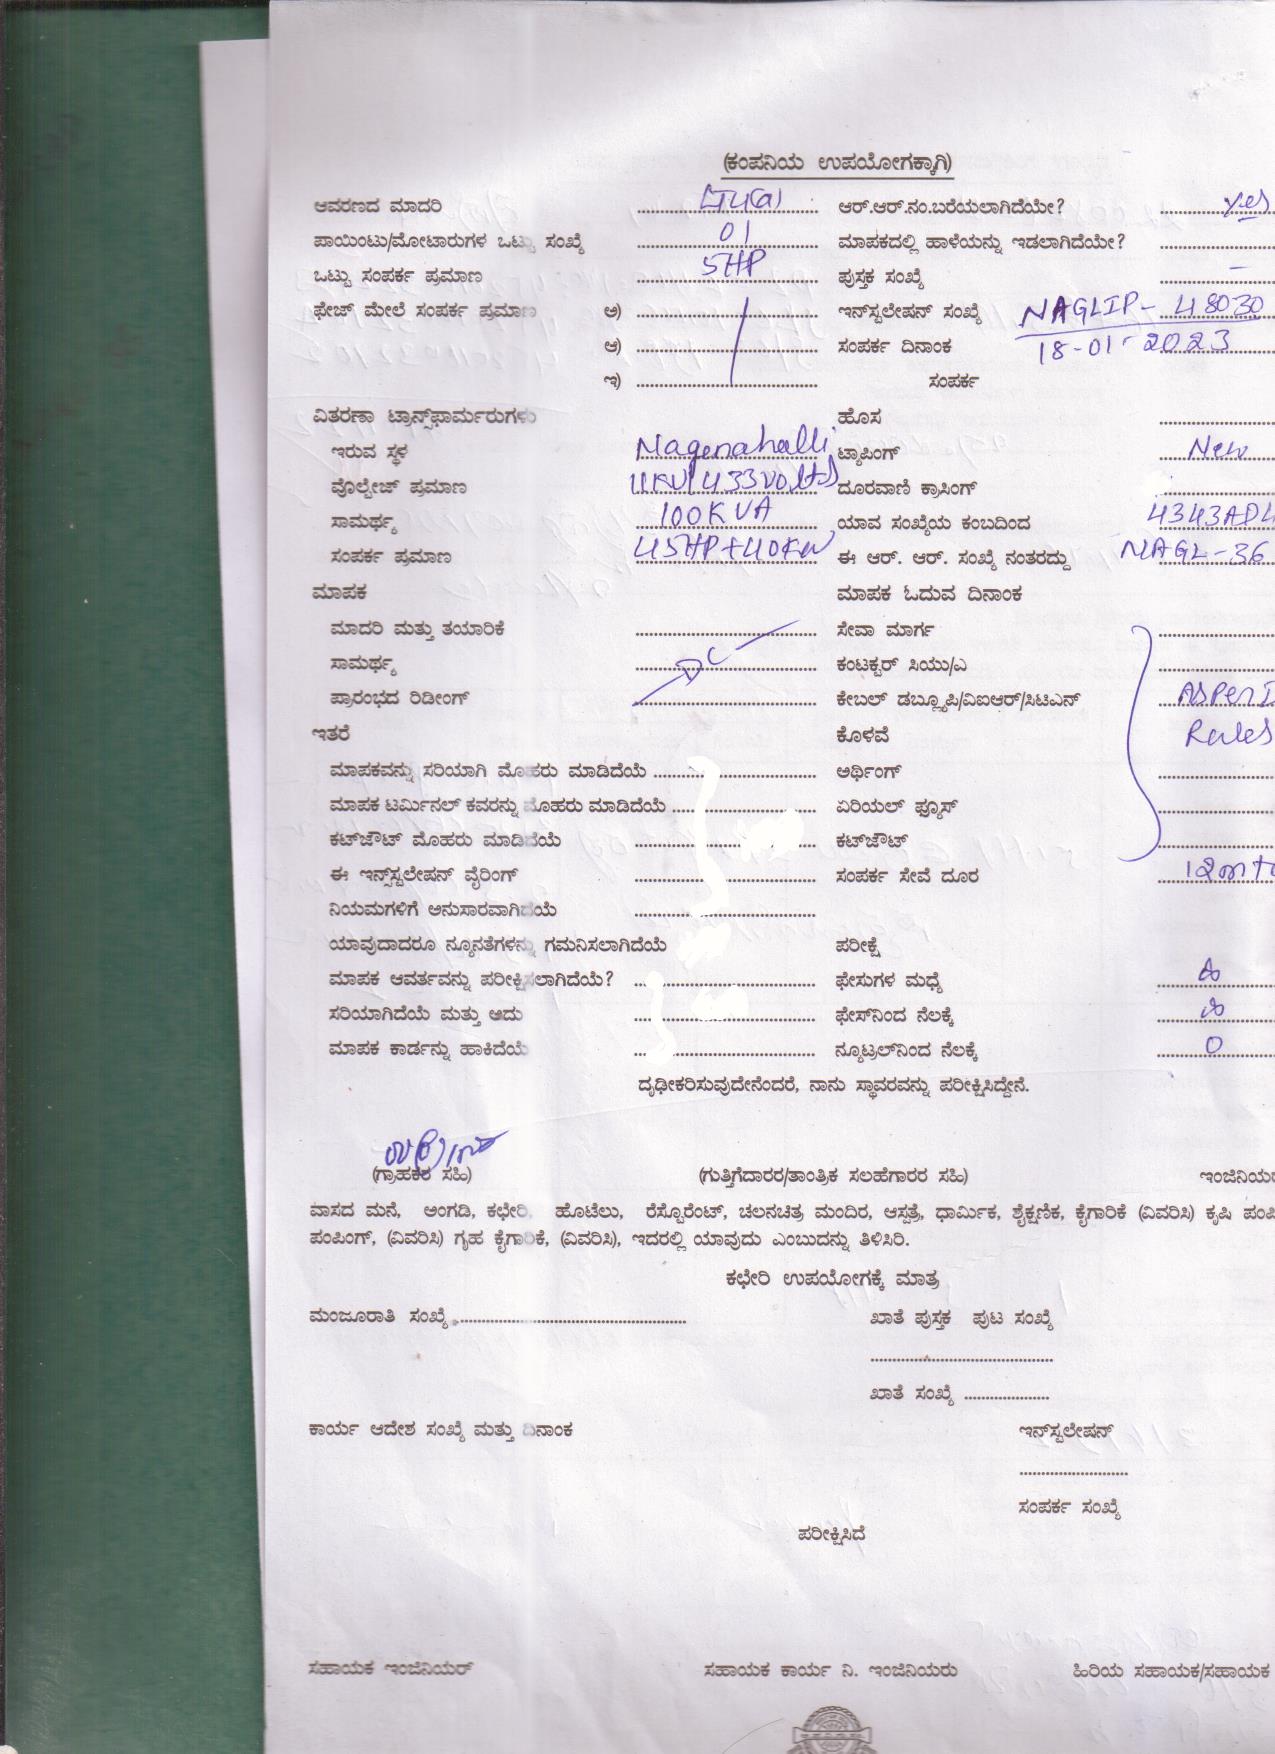 (ಕಂಪನಿಯ ಉಪಯೋಗಕ್ಕಾಗಿ)
ಆವರಣದ ಮಾದರಿ LT4(a) ಆರ್.ಆರ್.ನಂ.ಬರೆಯಲಾಗಿದೆಯೇ? yes
ಪಾಯಿಂಟು/ಮೋಟಾರುಗಳ ಒಟ್ಟು ಸಂಖ್ಯೆ 01 ಮಾಪಕದಲ್ಲಿ ಹಾಳೆಯನ್ನು ಇಡಲಾಗಿದೆಯೇ?
ಒಟ್ಟು ಸಂಪರ್ಕ ಪ್ರಮಾಣ 5HP ಪುಸ್ತಕ ಸಂಖ್ಯೆ –
ಫೇಜ್ ಮೇಲೆ ಸಂಪರ್ಕ ಪ್ರಮಾಣ ಅ) ಇನ್‌ಸ್ಟಲೇಷನ್ ಸಂಖ್ಯೆ NAGLIP- 48030
ಆ) ಸಂಪರ್ಕ ದಿನಾಂಕ 18-01-2023
ಇ) ಸಂಪರ್ಕ
ವಿತರಣಾ ಟ್ರಾನ್ಸ್‌ಫಾರ್ಮರುಗಳು ಹೊಸ
ಇರುವ ಸ್ಥಳ Nagenahalli ಟ್ಯಾಪಿಂಗ್ New
ವೊಲ್ಟೇಜ್ ಪ್ರಮಾಣ 11KV/433Volts ದೂರವಾಣಿ ಕ್ರಾಸಿಂಗ್
ಸಾಮರ್ಥ್ಯ 100KVA ಯಾವ ಸಂಖ್ಯೆಯ ಕಂಬದಿಂದ
ಸಂಪರ್ಕ ಪ್ರಮಾಣ 45HP+40KW ಈ ಆರ್. ಆರ್. ಸಂಖ್ಯೆ ನಂತರದ್ದು NAGL-36
ಮಾಪಕ ಮಾಪಕ ಓದುವ ದಿನಾಂಕ
ಮಾದರಿ ಮತ್ತು ತಯಾರಿಕೆ ಸೇವಾ ಮಾರ್ಗ
ಸಾಮರ್ಥ್ಯ DC ಕಂಟಕ್ಟರ್ ಸಿಯು/ಎ
ಪ್ರಾರಂಭದ ರಿಡೀಂಗ್ ಕೇಬಲ್ ಡಬ್ಲ್ಯೂಪಿ/ವಿಐಆರ್/ಸಿಟಿಎನ್ ASPer I
ಇತರೆ ಕೊಳವೆ Rules
ಮಾಪಕವನ್ನು ಸರಿಯಾಗಿ ಮೊಹರು ಮಾಡಿದೆಯೆ ಅರ್ಥಿಂಗ್
ಮಾಪಕ ಟರ್ಮಿನಲ್ ಕವರನ್ನು ಮೊಹರು ಮಾಡಿದೆಯೆ ಏರಿಯಲ್ ಫ್ಯೂಸ್
ಕಟ್‌ಜೌಟ್ ಮೊಹರು ಮಾಡಿದೆಯೆ ಕಟ್‌ಜೌಟ್
ಈ ಇನ್ಸ್‌ಸ್ಟಲೇಷನ್ ವೈರಿಂಗ್ ಸಂಪರ್ಕ ಸೇವೆ ದೂರ 12mt
ನಿಯಮಗಳಿಗೆ ಅನುಸಾರವಾಗಿದೆಯೆ
ಯಾವುದಾದರೂ ನ್ಯೂನತೆಗಳನ್ನು ಗಮನಿಸಲಾಗಿದೆಯೆ ಪರೀಕ್ಷೆ
ಮಾಪಕ ಆವರ್ತವನ್ನು ಪರೀಕ್ಷಿಸಲಾಗಿದೆಯೆ? ಫೇಸುಗಳ ಮಧ್ಯೆ
ಸರಿಯಾಗಿದೆಯೆ ಮತ್ತು ಆದು ಫೇಸ್‌ನಿಂದ ನೆಲಕ್ಕೆ
ಮಾಪಕ ಕಾರ್ಡನ್ನು ಹಾಕಿದೆಯೆ ನ್ಯೂಟ್ರಲ್‌ನಿಂದ ನೆಲಕ್ಕೆ 0
ದೃಢೀಕರಿಸುವುದೇನೆಂದರೆ, ನಾನು ಸ್ಥಾವರವನ್ನು ಪರೀಕ್ಷಿಸಿದ್ದೇನೆ.
(ಗ್ರಾಹಕರ ಸಹಿ) (ಗುತ್ತಿಗೆದಾರರ/ತಾಂತ್ರಿಕ ಸಲಹೆಗಾರರ ಸಹಿ) ಇಂಜಿನಿಯರ
ವಾಸದ ಮನೆ, ಅಂಗಡಿ, ಕಛೇರಿ, ಹೊಟೆಲು, ರೆಸ್ಟೊರೆಂಟ್, ಚಲನಚಿತ್ರ ಮಂದಿರ, ಆಸ್ಪತ್ರೆ, ಧಾರ್ಮಿಕ, ಶೈಕ್ಷಣಿಕ, ಕೈಗಾರಿಕೆ (ವಿವರಿಸಿ) ಕೃಷಿ ಪಂಪಿ
ಪಂಪಿಂಗ್, (ವಿವರಿಸಿ) ಗೃಹ ಕೈಗಾರಿಕೆ, (ವಿವರಿಸಿ), ಇದರಲ್ಲಿ ಯಾವುದು ಎಂಬುದನ್ನು ತಿಳಿಸಿರಿ.
ಕಛೇರಿ ಉಪಯೋಗಕ್ಕೆ ಮಾತ್ರ
ಮಂಜೂರಾತಿ ಸಂಖ್ಯೆ ಖಾತೆ ಪುಸ್ತಕ ಪುಟ ಸಂಖ್ಯೆ
ಖಾತೆ ಸಂಖ್ಯೆ
ಕಾರ್ಯ ಆದೇಶ ಸಂಖ್ಯೆ ಮತ್ತು ದಿನಾಂಕ ಇನ್‌ಸ್ಟಲೇಷನ್
ಸಂಪರ್ಕ ಸಂಖ್ಯೆ
ಪರೀಕ್ಷಿಸಿದೆ
ಸಹಾಯಕ ಇಂಜಿನಿಯರ್ ಸಹಾಯಕ ಕಾರ್ಯ ನಿ. ಇಂಜಿನಿಯರು ಹಿರಿಯ ಸಹಾಯಕ/ಸಹಾಯಕ